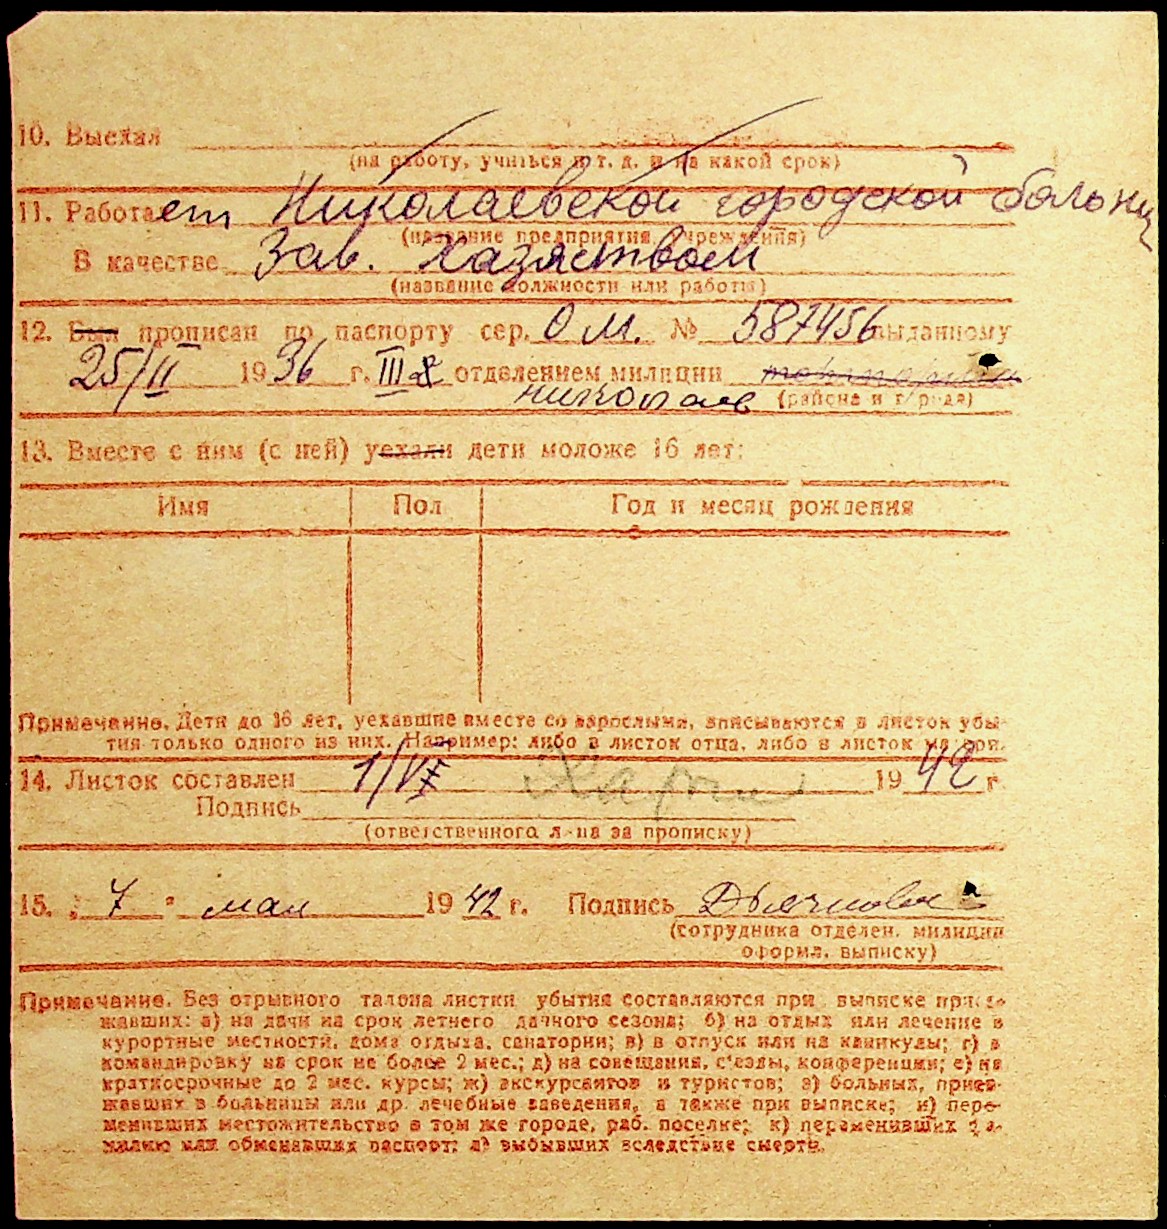 10. Выехал
(на работу, учиться и т. д. и на какой срок)
11. Работает Николаевской городской больниц
(название предприятия, учреждения)
В качестве Зав. хазяством
(название должности или работы)
12. Был прописан по паспорту сер. О М. № 587456 выданному
25/II 1936 г. III отделением милиции
николаев (района и города)
13. Вместе с ним (с ней) уехали дети моложе 16 лет:
Имя Пол Год и месяц рождения
Примечание. Дети до 16 лет, уехавшие вместе со взрослыми, вписываются в листок убы-
тия только одного из них. Например: либо в листок отца, либо в листок матери.
14. Листок составлен 1/V 1942 г.
Подпись
(ответственного л-ца за прописку)
15. „7" мая 1942 г. Подпись
(сотрудника отделен. милиции
оформл. выписку)
Примечание. Без отрывного талона листки убытия составляются при выписке приез-
жавших: а) на дачи на срок летнего дачного сезона; б) на отдых или лечение в
курортные местности, дома отдыха, санатории; в) в отпуск или на каникулы; г) в
командировку на срок не более 2 мес.; д) на совещания, с'езды, конференции; е) на
краткосрочные до 2 мес. курсы; ж) экскурсантов и туристов; з) больных, приез-
жавших в больницы или др. лечебные заведения, а также при выписке; и) пере-
менивших местожительство в том же городе, раб. поселке; к) переменивших фа-
милию или обменявших паспорт; л) выбывших вследствие смерти.